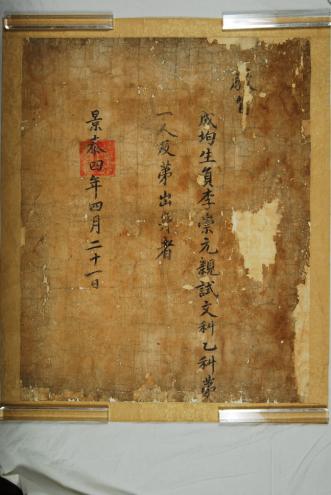 敎旨
成均生員李崇元親試文科乙科第
一人及第出身者
景泰四年四月二十一日